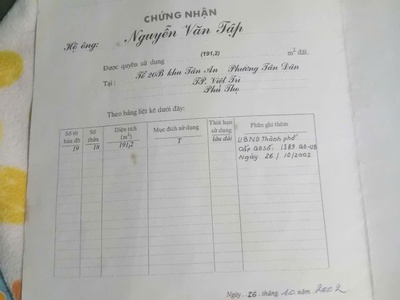 CHỨNG NHẬN
Hộ ông: Nguyễn Văn Tập
Được quyền sử dụng (191,2) m² đất
Tại: Tổ 20B khu Tân An Phường Tân Dân
TP. Việt Trì
Phú Thọ
Theo bảng liệt kê dưới đây:
Số tờ bản đồ Số thửa Diện tích (m²) Mục đích sử dụng Thời hạn sử dụng Phần ghi thêm
19 18 191,2 T lâu dài UBND Thành phố
Cấp QĐ Số: 1389 QĐ-UB
Ngày 26/10/2002
Ngày 26 tháng 10 năm 2002